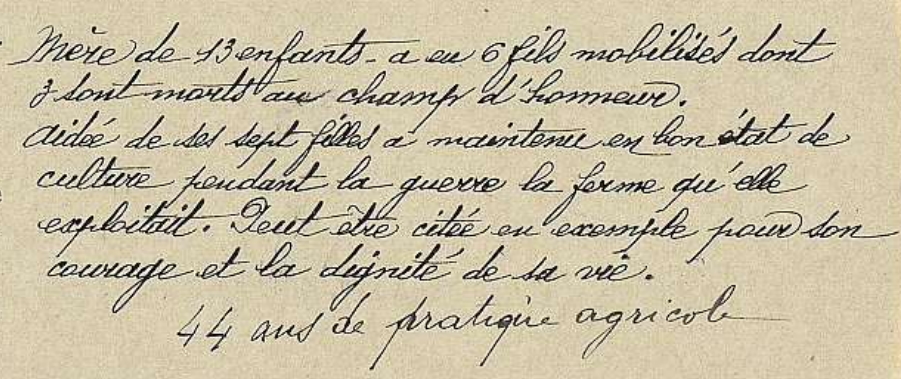 Mère de 13 enfants - a eu 6 fils mobilisés dont
3 sont morts au champ d'honneur.
aidée de ses sept filles a maintenu en bon état de
culture pendant la guerre la ferme qu'elle
exploitait. Peut être citée en exemple pour son
courage et la dignité de sa vie.
44 ans de pratique agricole